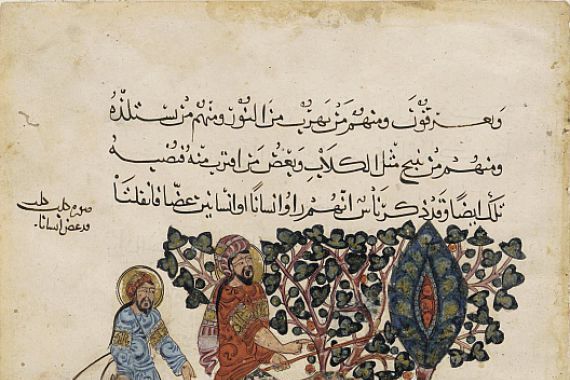 ويعرقون ومنهم من يهرب من النور ومنهم من يستلذه
ومنهم من ينبح مثل الكلاب ويعض من اقترب منه
ايضا وقد ذكر ناس انهم راوا انسانا او انسانين عضا فانفلتا
صورة كلب كلب
قد عض انسانا